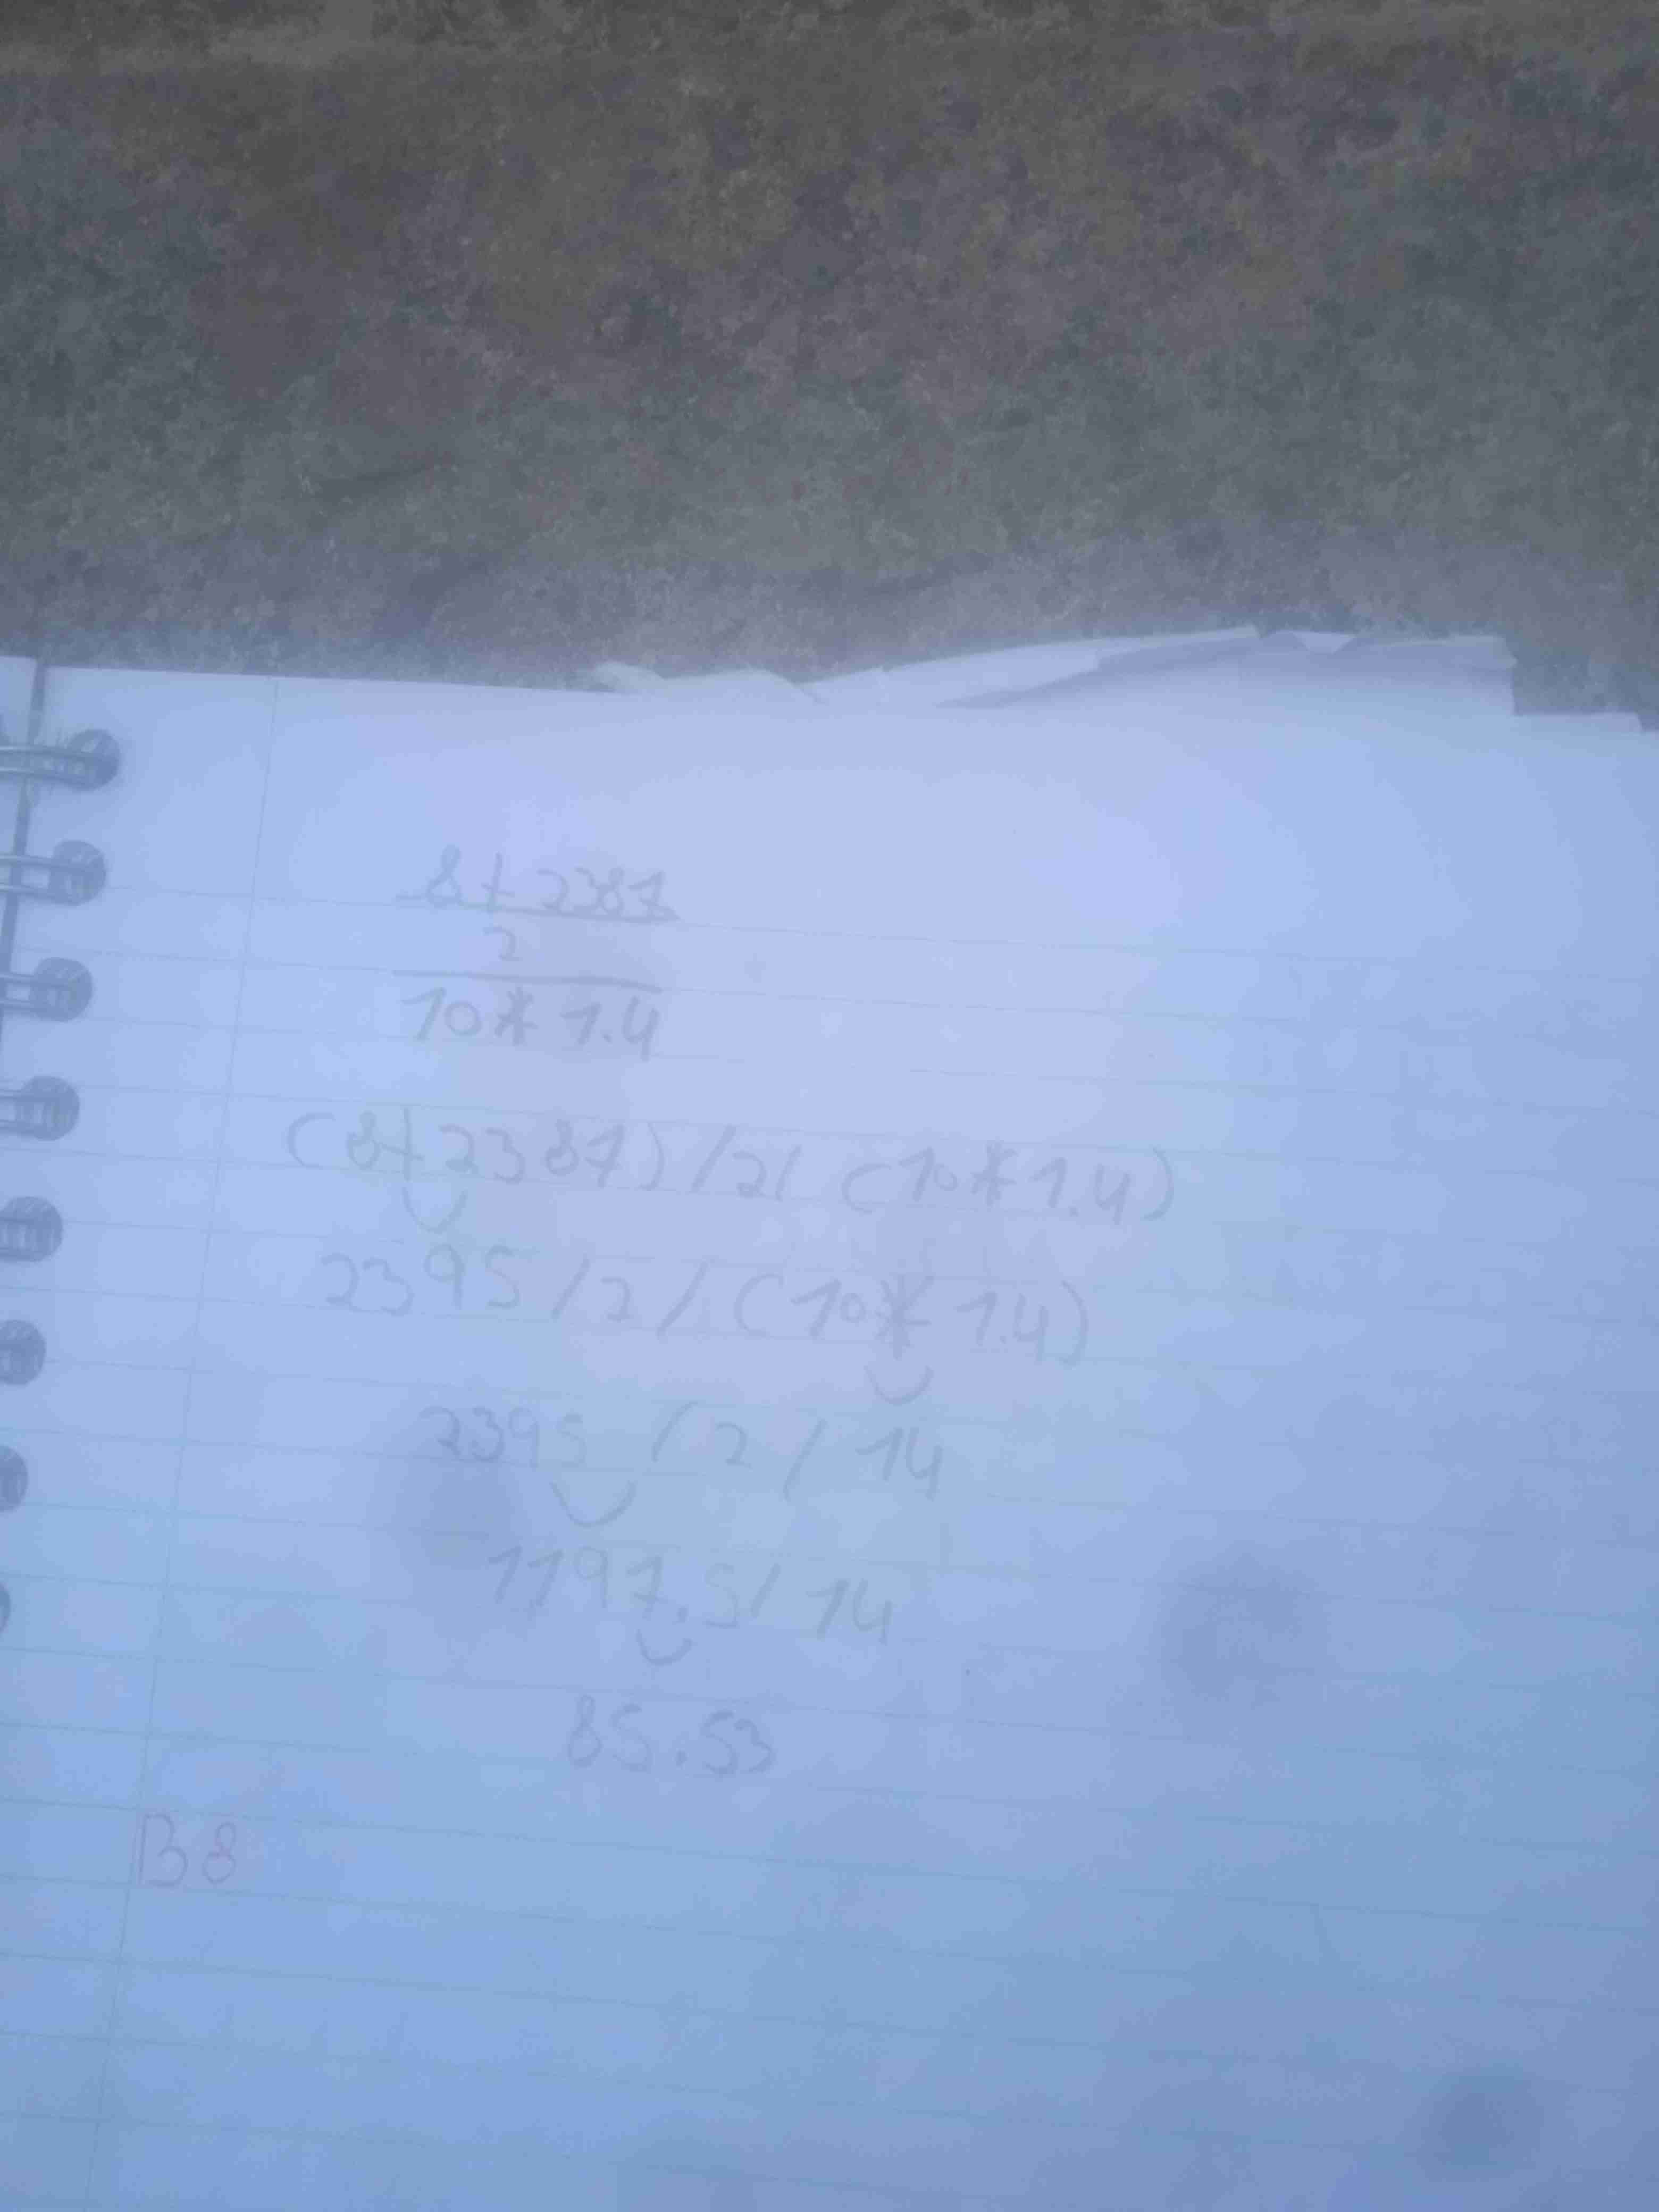 8 + 2387
2
10 * 1.4
(8+2387) /2/ (10*1.4)
2395 /2/ (10* 1.4)
2395 / 2 / 14
1197.5/ 14
85.53
B8